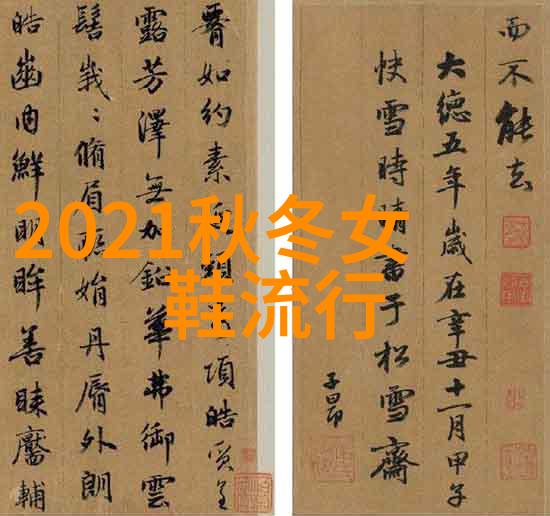 2021秋冬女
鞋流行
如約素項皓質呈
露芳澤無加鉛華弗御雲
髻峩〻脩眉聯娟丹脣外朗
皓齒内鮮明眸善睞靨輔
而不能去
大德五年歲在辛丑十一月甲子
快雪時晴書于松雪齋
子昂